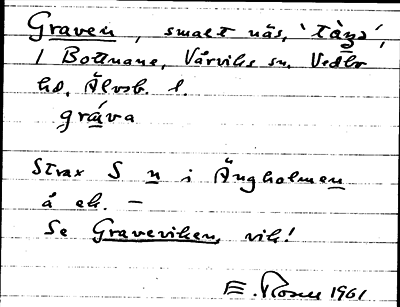 Graven, smalt näs, 'tånga',
i Bottnane, Vårviks sn. Vedbo
hd, Älvsb. l.
gráva
Strax S n i Ängholmen
å ek. —
Se Graveviken, vik!
E. Rosell 1961